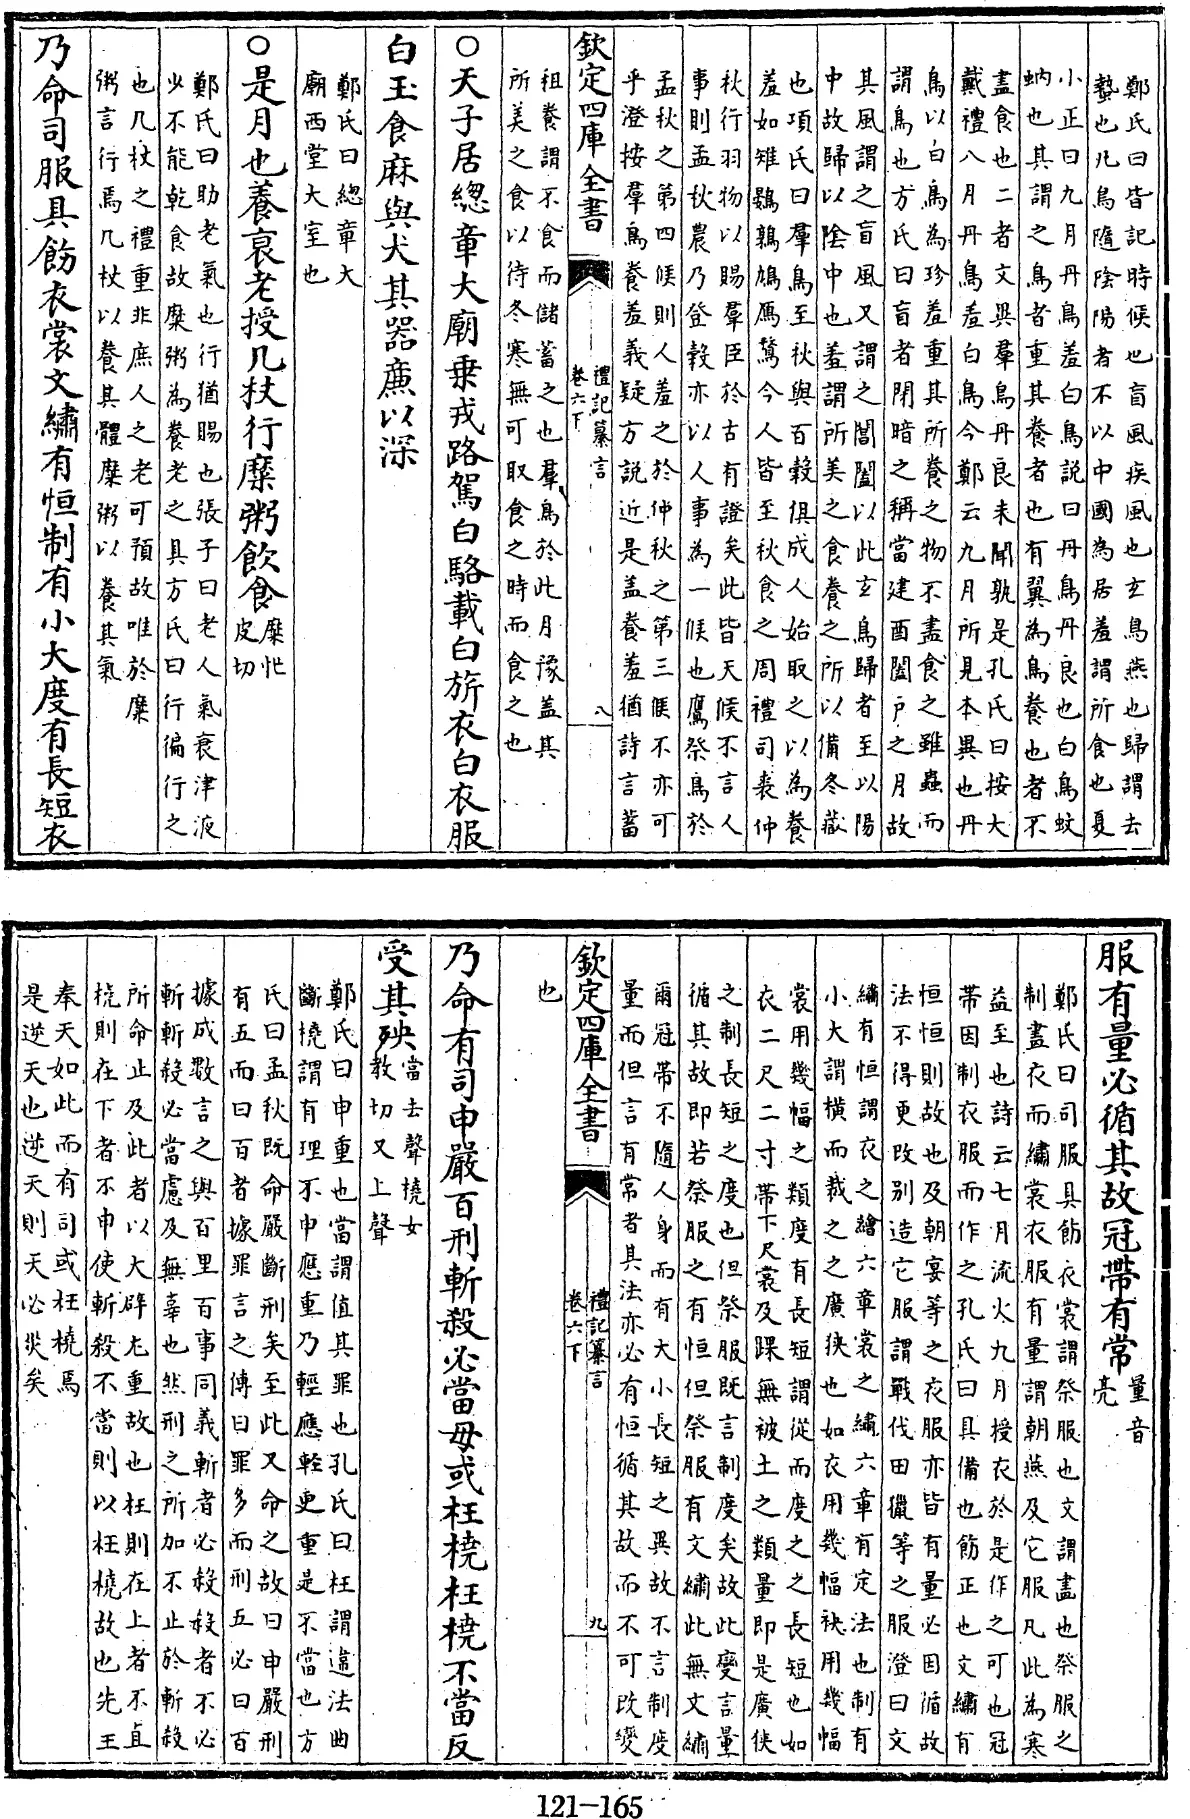 鄭氏曰皆記時候也盲風疾風也玄鳥燕也歸謂去
蟄也凡鳥隨陰陽者不以中國為居羞謂所食也夏
小正曰九月丹鳥羞白鳥説曰丹鳥丹良也白鳥蚊
蚋也其謂之鳥者重其養者也有翼為鳥養也者不
盡食也二者文異羣鳥丹良未聞孰是孔氏曰按大
戴禮八月丹鳥羞白鳥今鄭云九月所見本異也丹
鳥以白鳥為珍羞重其所養之物不盡食之雖蟲而
謂鳥也方氏曰盲者閉暗之稱當建酉闔戸之月故
其風謂之盲風又謂之閶闔以此玄鳥歸者至以陽
中故歸以陰中也羞謂所美之食養之所以備冬藏
也項氏曰羣鳥至秋與百穀俱成人始取之以為養
羞如雉鷃鶉鳩鴈鶩今人皆至秋食之周禮司裘仲
秋行羽物以賜羣臣於古有證矣此皆天候不言人
事則孟秋農乃登穀亦以人事為一候也鷹祭鳥於
孟秋之第四候則人羞之於仲秋之第三候不亦可
乎澄按羣鳥養羞義疑方説近是盖養羞猶詩言蓄
欽定四庫全書 禮記纂言 卷六下 八
租養謂不食而儲蓄之也羣鳥於此月豫盖其
所美之食以待冬寒無可取食之時而食之也
○天子居總章大廟乗戎路駕白駱載白旂衣白衣服
白玉食麻與犬其器廉以深
鄭氏曰總章大
廟西堂大室也
○是月也養衰老授几杖行糜粥飲食糜忙皮切
鄭氏曰助老氣也行猶賜也張子曰老人氣衰津液
少不能乾食故糜粥為養老之具方氏曰行徧行之
也几杖之禮重非庶人之老可預故唯於糜
粥言行焉几杖以養其體糜粥以養其氣
乃命司服具飭衣裳文繡有恒制有小大度有長短衣
服有量必循其故冠帶有常量音亮
鄭氏曰司服具飭衣裳謂祭服也文謂畫也祭服之
制畫衣而繡裳衣服有量謂朝燕及它服凡此為寒
益至也詩云七月流火九月授衣於是作之可也冠
帶因制衣服而作之孔氏曰具備也飭正也文繡有
恒恒則故也及朝宴等之衣服亦皆有量必因循故
法不得更改别造它服謂戰伐田獵等之服澄曰文
繡有恒謂衣之繪六章裳之繡六章有定法也制有
小大謂横而裁之之廣狹也如衣用幾幅袂用幾幅
裳用幾幅之類度有長短謂從而度之之長短也如
衣二尺二寸帶下尺裳及踝無被土之類量即是廣狹
之制長短之度也但祭服既言制度矣故此變言量
循其故即若祭服之有恒但祭服有文繡此無文繡
爾冠帶不隨人身而有大小長短之異故不言制度
量而但言有常者其法亦必有恒循其故而不可改變
欽定四庫全書 禮記纂言 卷六下 九
也
乃命有司申嚴百刑斬殺必當毋或枉橈枉橈不當反
受其殃當去聲橈女教切又上聲
鄭氏曰申重也當謂值其罪也孔氏曰枉謂違法曲
斷橈謂有理不申應重乃輕應輕更重是不當也方
氏曰孟秋既命嚴斷刑矣至此又命之故曰申嚴刑
有五而曰百者據罪言之傳曰罪多而刑五必曰百
據成數言之與百里百事同義斬者必殺殺者不必
斬斬殺必當慮及無辜也然刑之所加不止於斬殺
所命止及此者以大辟尤重故也枉則在上者不直
橈則在下者不申使斬殺不當則以枉橈故也先王
奉天如此而有司或枉橈焉
是逆天也逆天則天必災矣
121-165